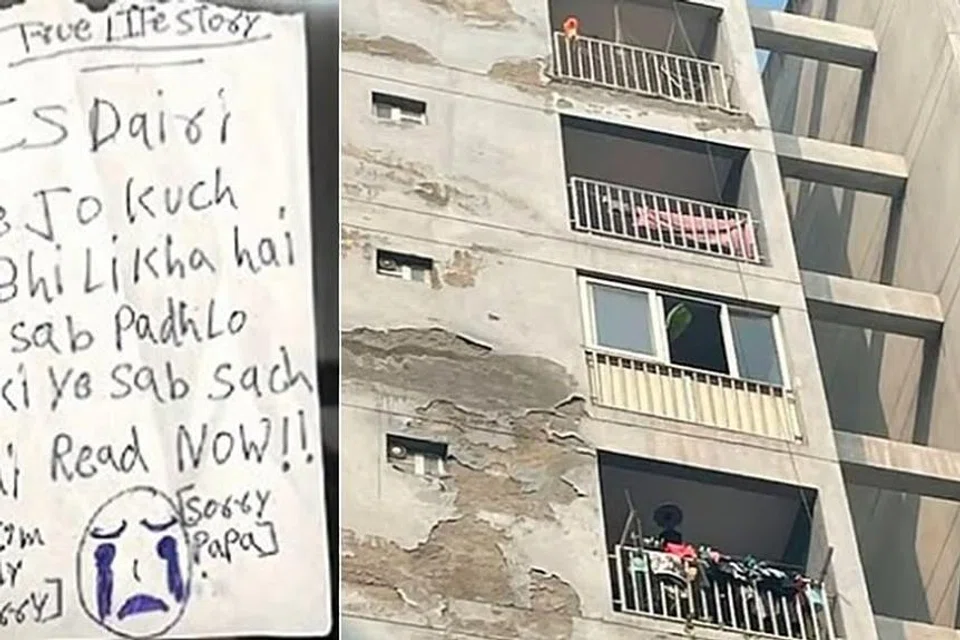 True LIFE Story
ES Dairi
Jo kuch
Bhi Likha hai
sab Padhlo
ki ye sab sach
Read NOW!!
[sorry
PaPa]